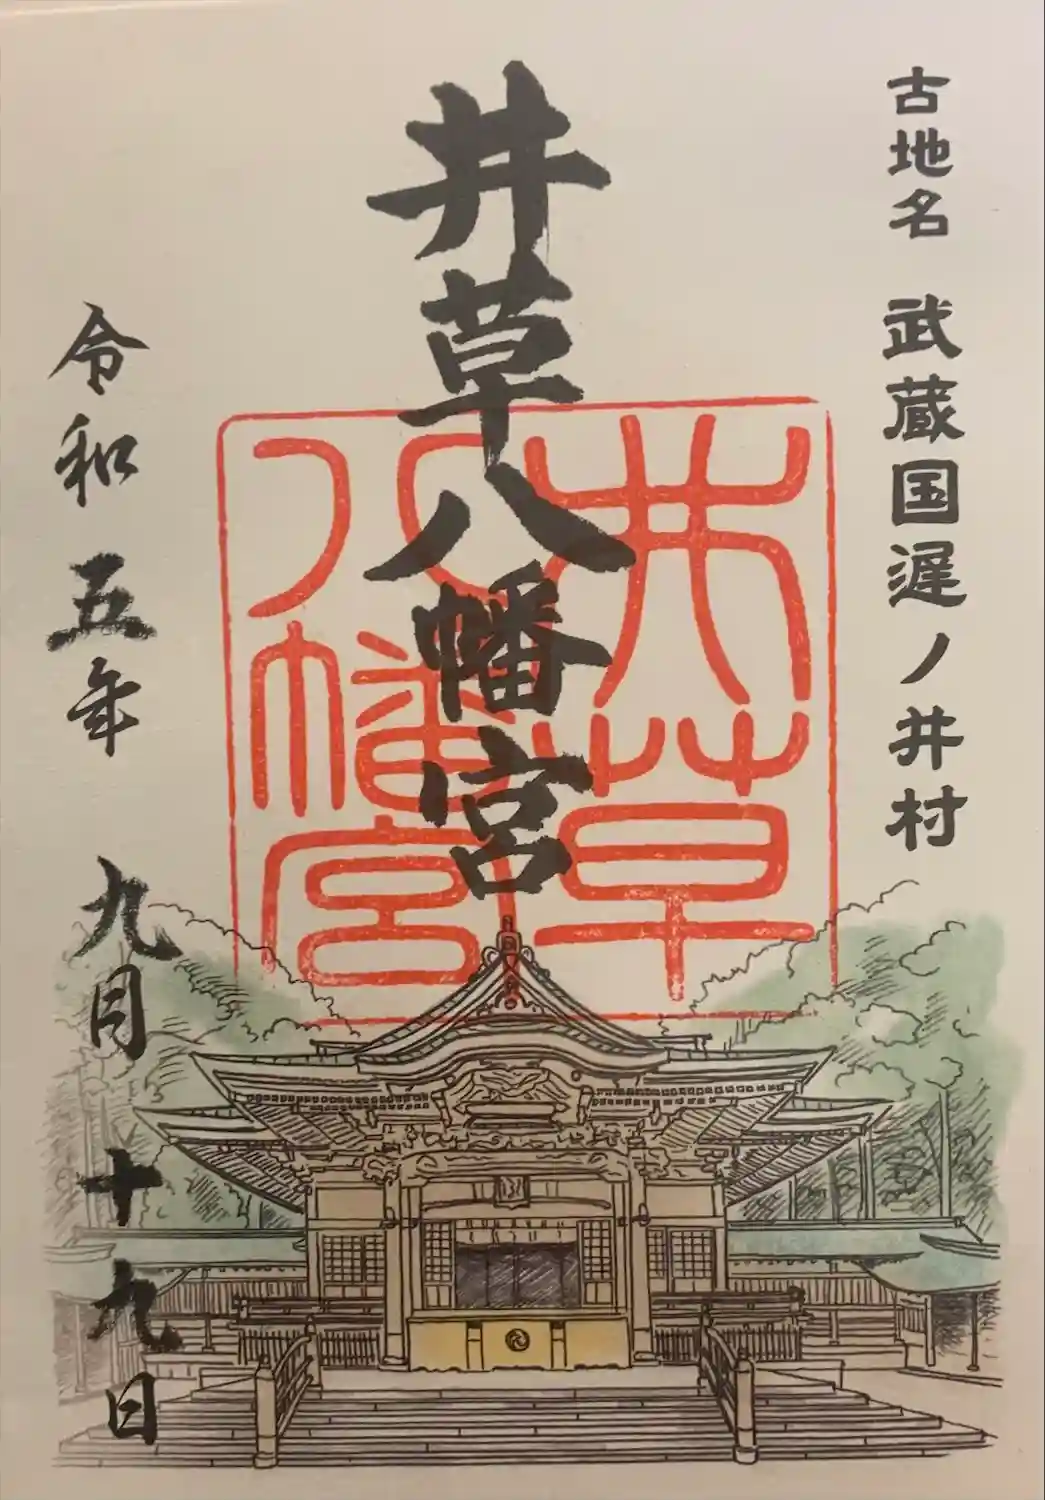 古地名 武蔵国遅ノ井村
井草八幡宮
井草
八幡宮
令和五年 九月十九日